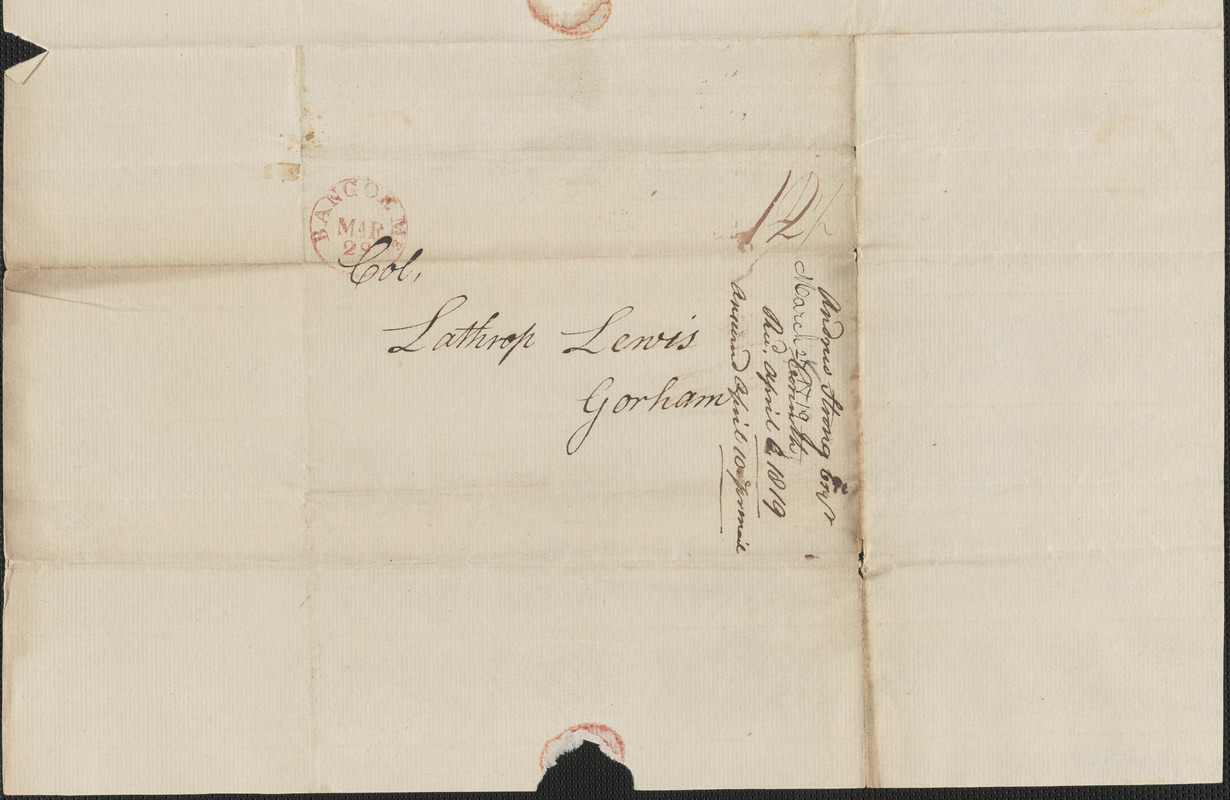 BANGOR Me
MAR
29
12/
Col,
Lathrop Lewis
Gorham
Andrew Strong Esqr
Corinth
March 27 1819
Recd. April 6 1819
Answered April 10 pr mail